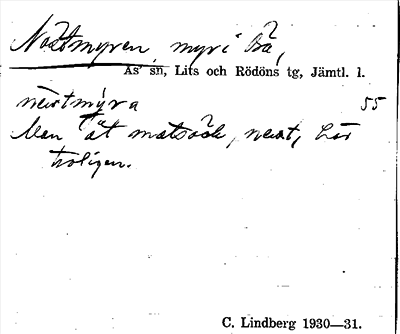 Nästmyren, myr i Bä,
Ås sn, Lits och Rödöns tg, Jämtl. l.
nästmýra 55
Man åt matsäck, nest, här
troligen.
C. Lindberg 1930—31.